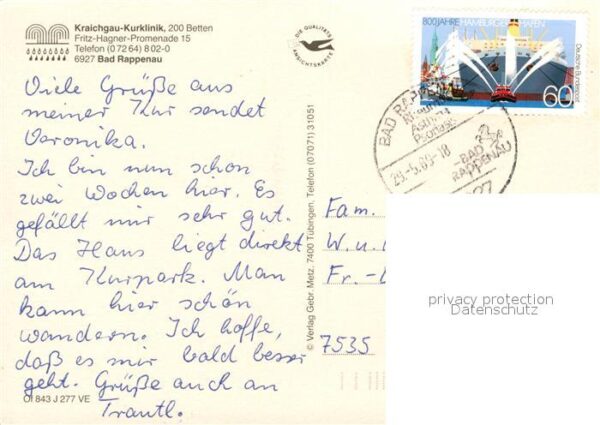 Kraichgau-Kurklinik, 200 Betten
Fritz-Hagner-Promenade 15
Telefon (0 72 64) 8 02-0
6927 Bad Rappenau
DIE QUALITÄTS
ANSICHTSKARTE
800 JAHRE HAMBURGER HAFEN
Deutsche Bundespost
60
BAD RAPP
Rheuma
Asthma
Psoriasis
-5.89-18
-BAD
RAPPENAU
Viele Grüße aus
meiner Kur sendet
Veronika.
Ich bin nun schon
zwei Wochen hier. Es
gefällt mir sehr gut.
Das Haus liegt direkt
am Kurpark. Man
kann hier schön
wandern. Ich hoffe,
daß es mir bald besser
geht. Grüße auch an
Trautl.
Ol 843 J 277 VE
© Verlag Gebr. Metz, 7400 Tübingen, Telefon (07071) 31051
Fam.
W. u.
Fr.-
7535
privacy protection
Datenschutz